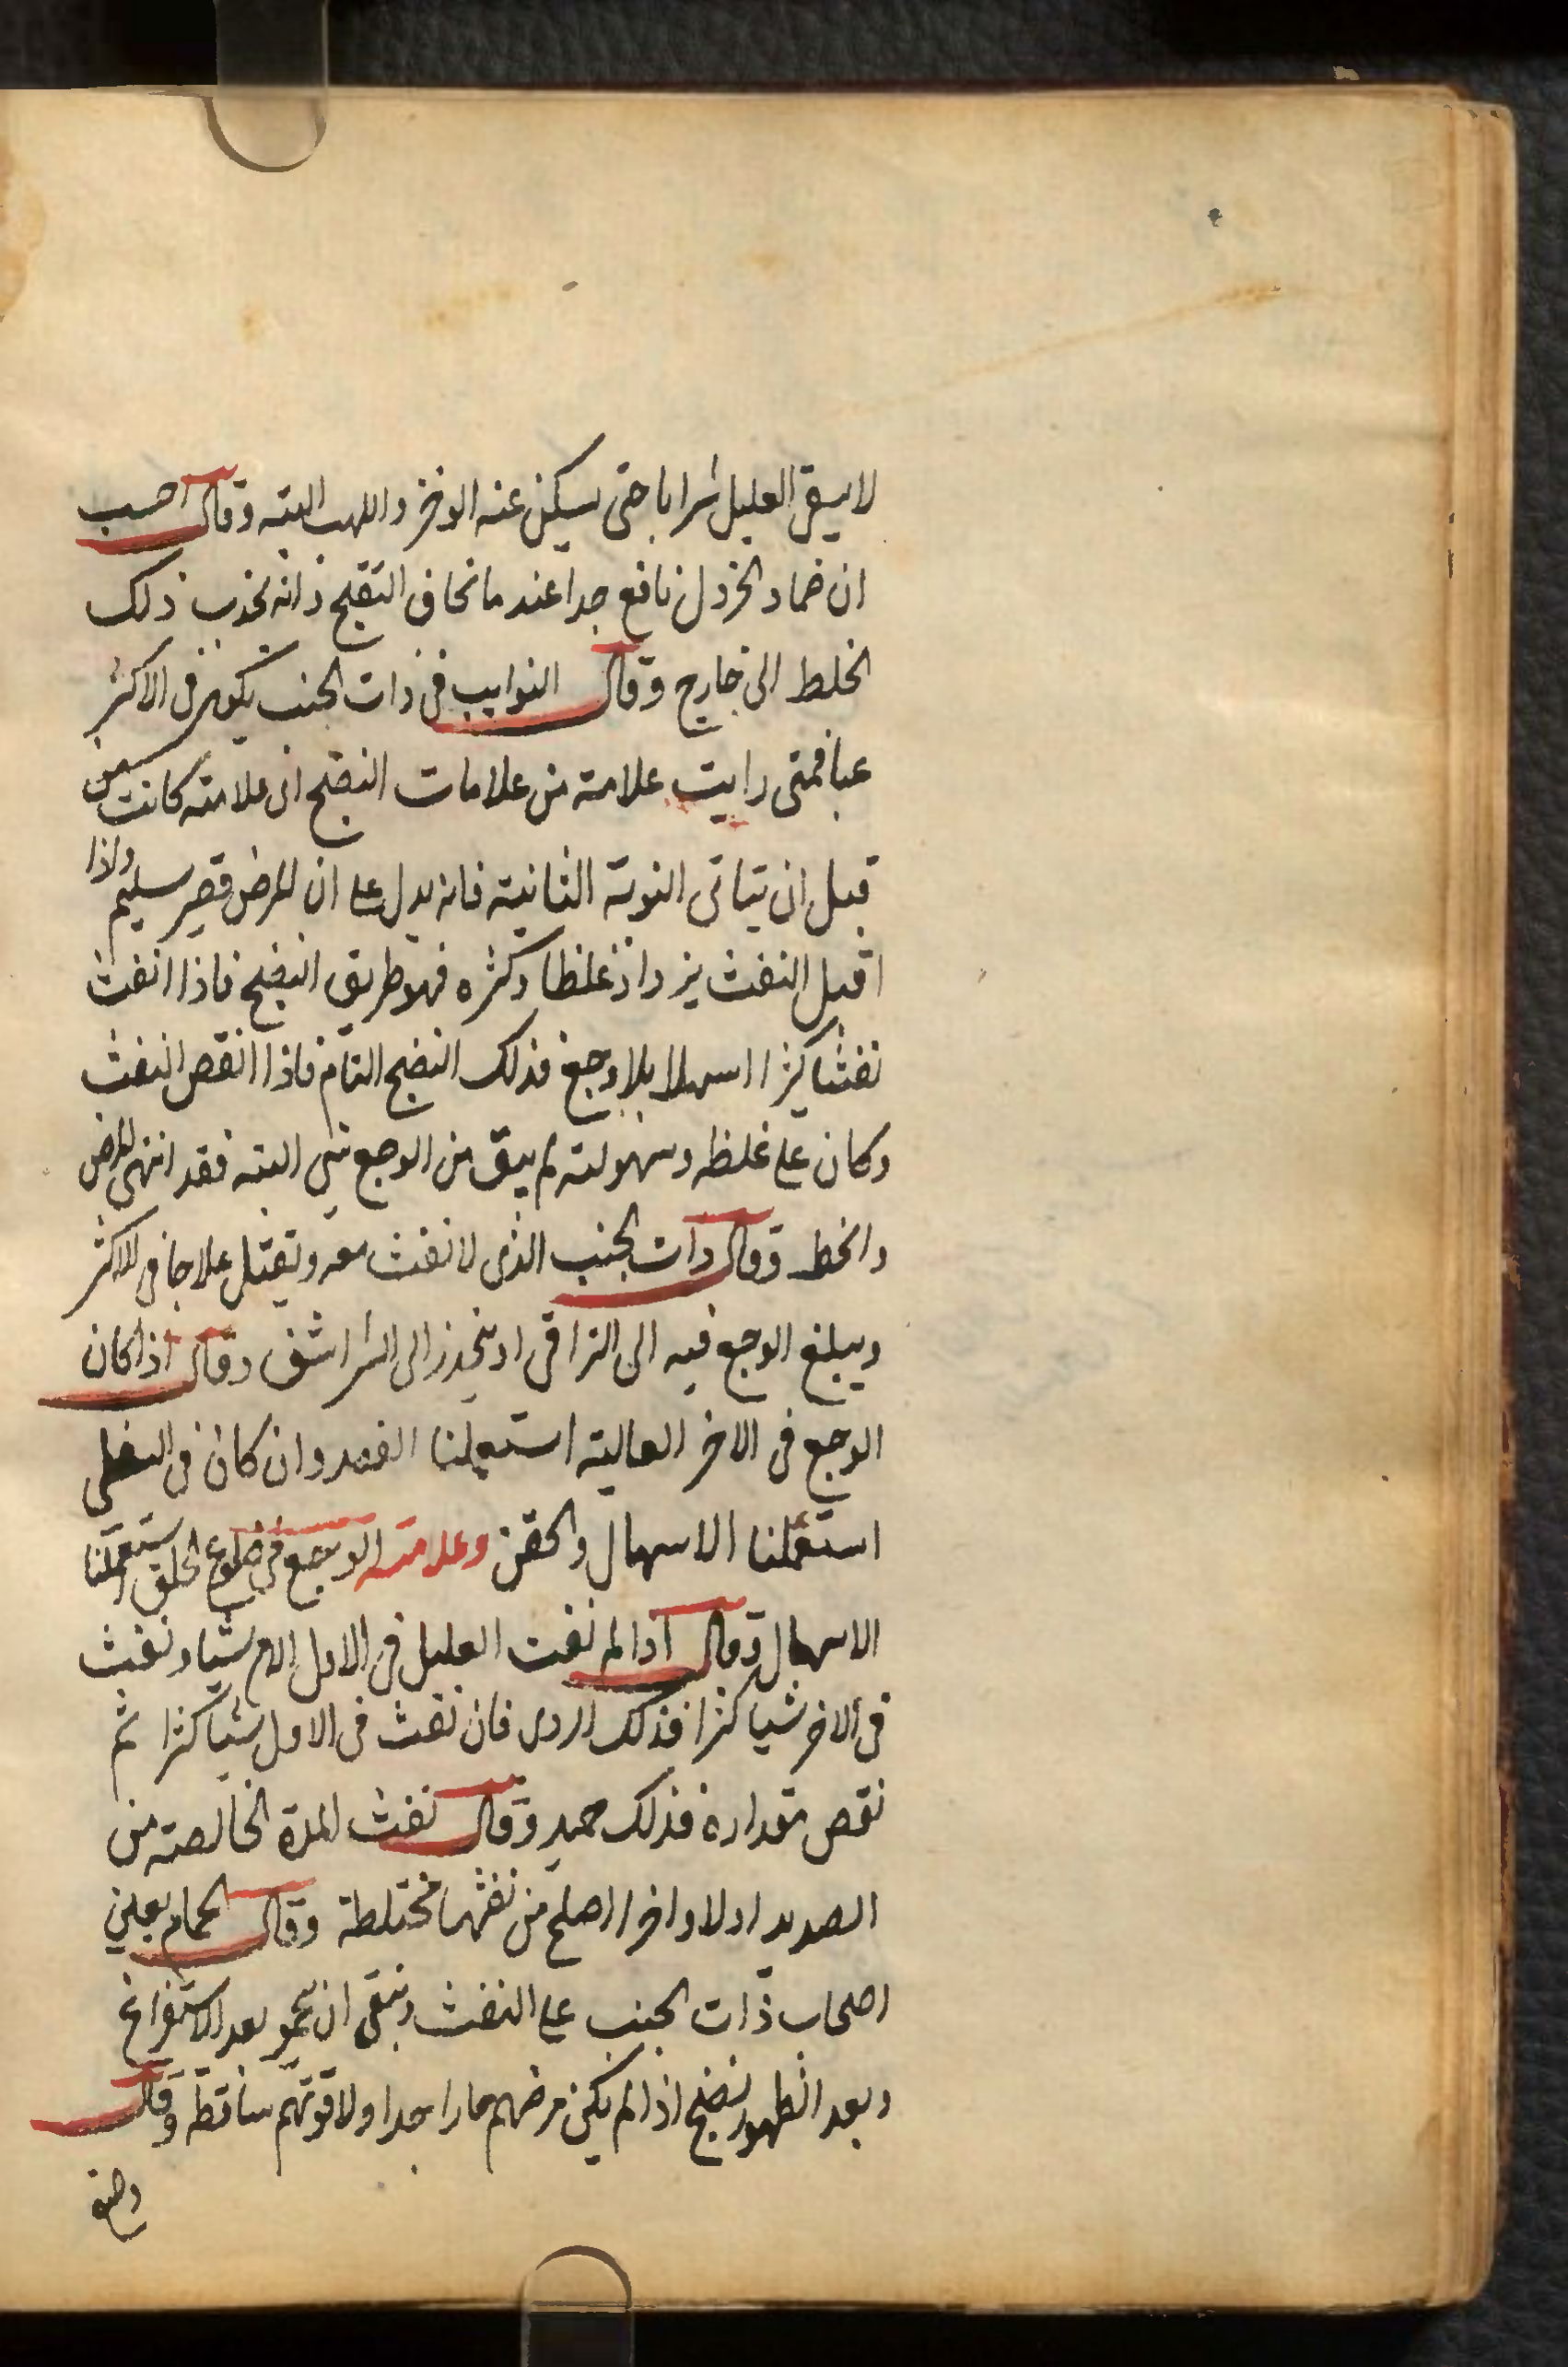 لا يسقى العليل شرابا حتى يسكن عنه الوخز واللهب البته وقال احسب
ان ضماد الخردل نافع جدا عند ما نخاف التقيح فانه يجذب ذلك
الخلط الى خارج وقال النوايب فى ذات الجنب يكون فى الاكثر
غبا فمتى رايت علامة من علامات النضج اى علامته كانت
قبل ان يتاتى النوبة الثانية فانه يدل على ان المرض قصير سليم واذا
اقبل النفث يزداد غلظا وكثره فهو طريق النضج فاذا انفث
نفثا كثيرا اسهلا بلا وجع فذلك النضج التام فاذا انقص النفث
وكان على غلظه وسهولته لم يبق من الوجع شى البته فقد انتهى المرض
والخط وقال ذات الجنب الذى لا نفث معه ويقتل علاجا فى الاكثر
ويبلغ الوجع فيه الى التراقى او ينحدر الى الشراشف وقال اذا كان
الوجع فى الاخر العاليه استعملنا الفصد وان كان فى السفلى
استعملنا الاسهال والحقن وعلامته الوجع فى ضلوع الخلق استعملنا
الاسهال وقال اذا لم نفث العليل فى الاول الام شيا و نفث
فى الاخر شيا كثرا فذلك اردى فان نفث فى الاول شيا كثرا ثم
نقص مقداره فذلك حميد وقال نفث المدة الخالصته من
الصديد اولا واخرا اصلح من نفثها مختلطة وقال الحمام يعين
اصحاب ذات الجنب على النفث وينبغى ان بعد الاستفراغ
وبعد انظهور نضج اذا لم يكن مرضهم حارا جدا ولا قوتهم ساقطة وقال